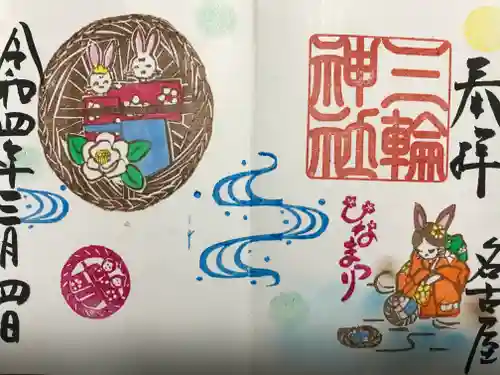 奉拝
名古屋
三輪
神社
ひなまつり
令和四年三月四日